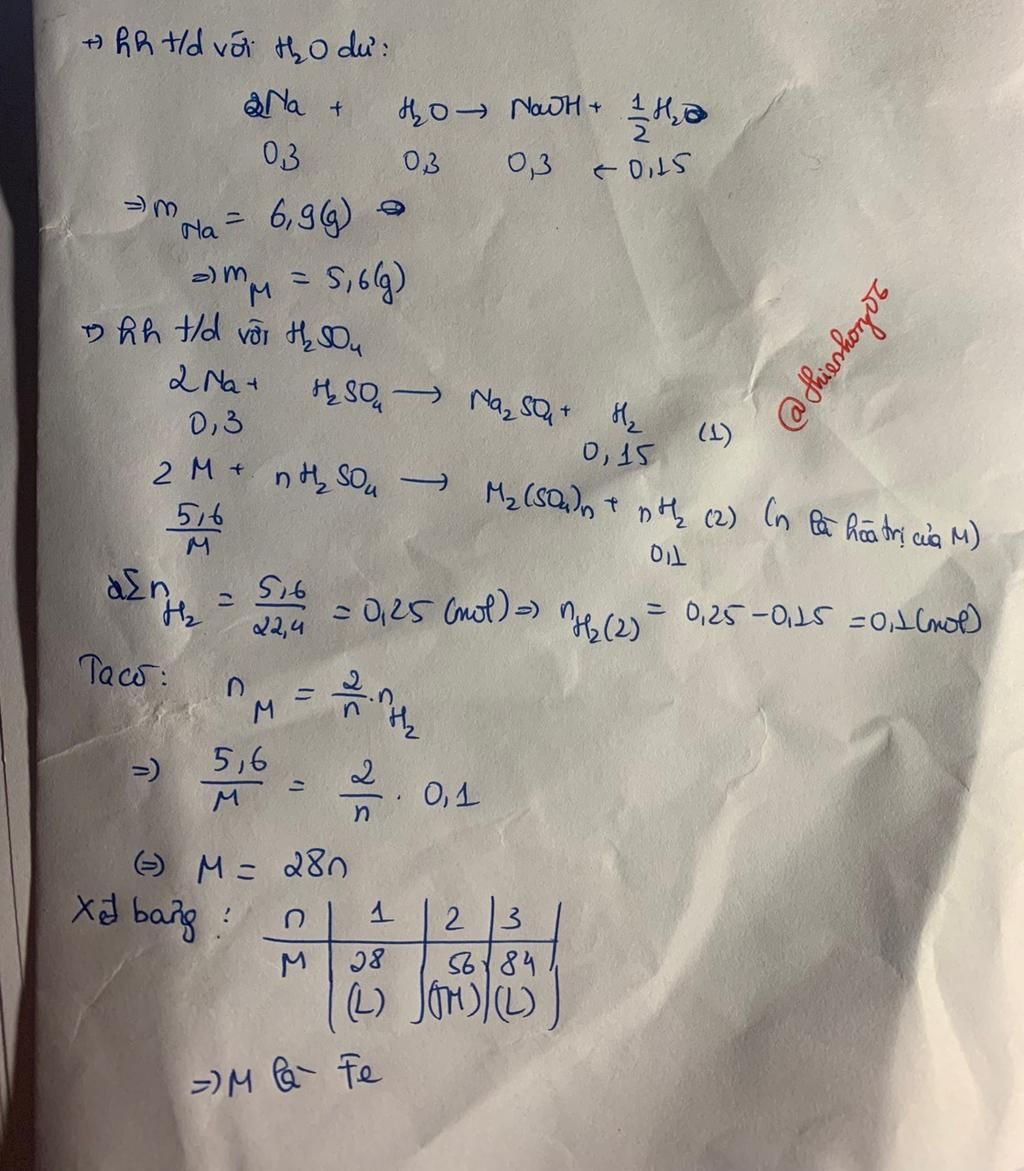 → hh t/d với H₂O dư:
2Na + H₂O → NaOH + 1/2 H₂
0,3 0,3 0,3 ← 0,15
⇒ m_Na = 6,9(g)
⇒ m_M = 5,6(g)
→ hh t/d với H₂SO₄
2Na + H₂SO₄ → Na₂SO₄ + H₂ (1)
0,3 0,15
2 M + nH₂SO₄ → M₂(SO₄)n + nH₂ (2) (n là hóa trị của M)
5,6/M 0,1
Σn_H₂ = 5,6/22,4 = 0,25 (mol) ⇒ n_H₂(2) = 0,25 - 0,15 = 0,1(mol)
Ta có: n_M = 2/n . n_H₂
⇒ 5,6/M = 2/n . 0,1
(⇒) M = 28n
Xét bảng: n | 1 | 2 | 3
M | 28 | 56 | 84
(L) | (TM) | (L)
⇒ M là Fe
@thienhong06